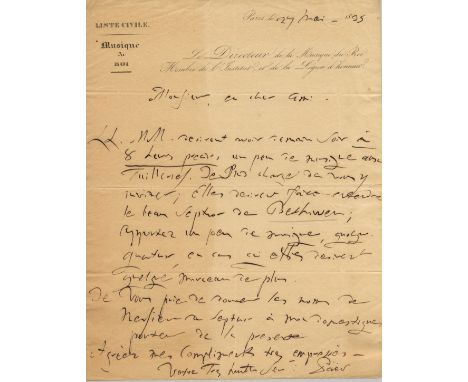 LISTE CIVILE.
Musique
DU
ROI
Paris le 27 mai 1835
Le Directeur de la Musique du Roi
Membre de l'Institut et de la Légion d'honneur
Monsieur, et cher ami.
LL. MM. desirent avoir demain soir à
8 heures precises, un peu de musique aux
Tuilleries. Je suis chargé de vous y
inviter; Elles desirent faire entendre
le beau Septuor de Bethowen;
apportez un peu de musique, quelque
quatuor en cas où elles desirent
quelque morceau de plus.
Je vous prie de donner les noms de
Messieurs du Septuor à mon domestique
porteur de la presente
Agréez mes compliments très empressés
Votre très